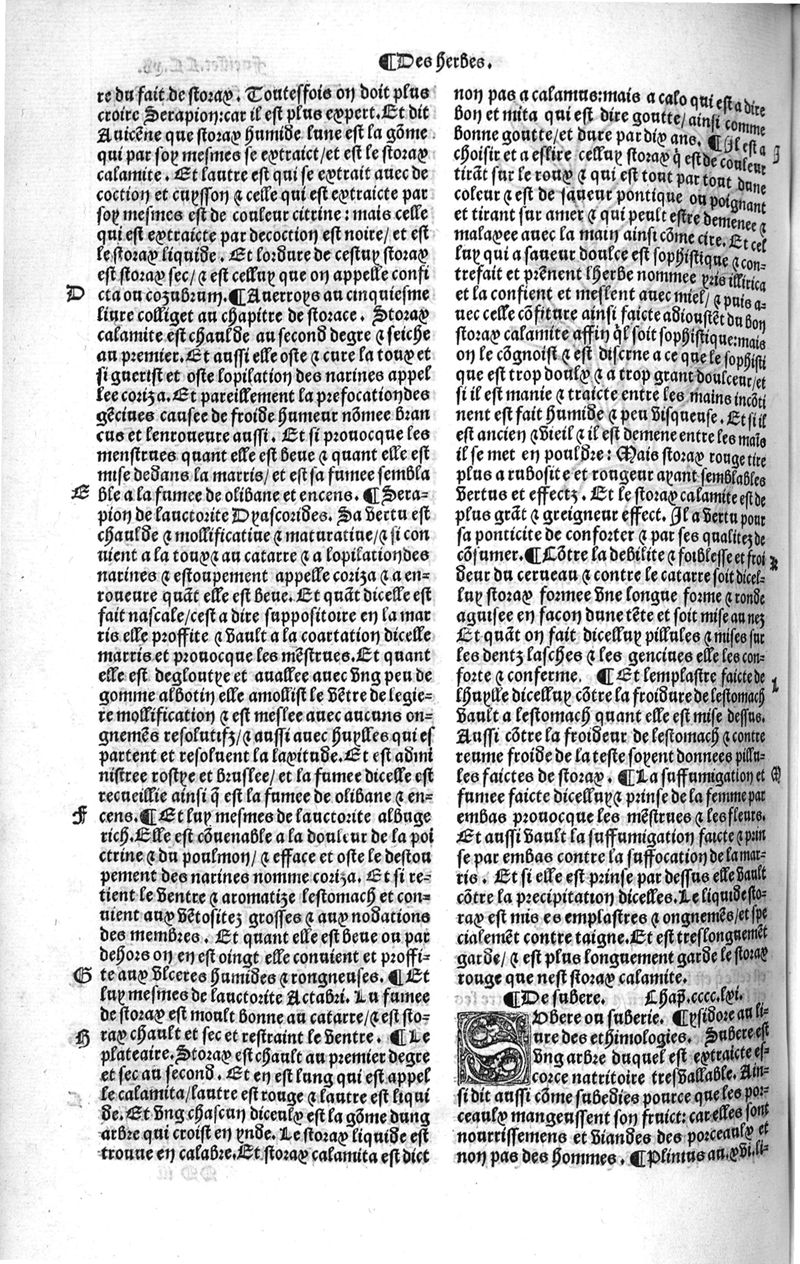 ¶Des herbes.
re du fait de storax. Toutesfois on doit plus
croire Serapion:car il est plus expert. Et dit
Auicēne que storax humide lune est la gōme
qui par soy mesmes se extraict/et est le storax
calamite. Et lautre est qui se extrait auec de
coction et cuysson ⁊ celle qui est extraicte par
soy mesmes est de couleur citrine: mais celle
qui est extraicte par decoction est noire/ et est
le storax liquide. Et lordure de cestuy storax
est storax sec/⁊ est celluy que on appelle confi
D cta ou cozubrum. ¶Auerroys au cinquiesme
liure colliget au chapitre de storace. Storax
calamite est chaulde au second degre ⁊ seiche
au premier. Et aussi elle oste ⁊ cure la toux et
si guerist et oste lopilation des narines appel
lee coriza. Et pareillement la prefocation des
gēciues causee de froide humeur nōmee bran
cus et lenroueure aussi. Et si prouocque les
menstrues quant elle est beue ⁊ quant elle est
mise dedans la marris/ et est sa fumee sembla
E ble a la fumee de olibane et encens. ¶Sera-
pion de lauctorite Dyascorides. Sa vertu est
chaulde ⁊ mollificatiue ⁊ maturatiue/⁊ si con
uient a la toux ⁊ au catarre ⁊ a lopilation des
narines ⁊ estoupement appelle coriza ⁊ a en-
roueure quāt elle est beue. Et quāt dicelle est
fait nascale/cest a dire suppositoire en la mar
ris elle proffite ⁊ vault a la coartation dicelle
marris et prouocque les mēstrues. Et quant
elle est degloutye et auallee auec vng peu de
gomme albotin elle amollist le vētre de legie-
re mollification ⁊ est meslee auec aucuns on-
gnemēs resolutifz/⁊ aussi auec huylles qui es
partent et resoluent la laxitude. Et est admi
nistree rostye et bruslee/ et la fumee dicelle est
recueillie ainsi q̄ est la fumee de olibane ⁊ en-
F cens. ¶Et luy mesmes de lauctorite albuge
rich. Elle est cōuenable a la douleur de la poi
ctrine ⁊ du poulmon/ ⁊ efface et oste le destou
pement des narines nomme coriza. Et si re-
tient le ventre ⁊ aromatize lestomach et con-
uient aux vētositez grosses ⁊ aux nodations
des membres. Et quant elle est beue ou par
dehors on en est oingt elle conuient et proffi-
G te aux vlceres humides ⁊ rongneuses. ¶Et
luy mesmes de lauctorite Actabri. La fumee
de storax est moult bonne au catarre/⁊ est sto-
H rax chault et sec et restraint le ventre. ¶Le
plateaire. Storax est chault au premier degre
et sec au second. Et en est lung qui est appel
le calamita/lautre est rouge ⁊ lautre est liqui
de. Et vng chascun diceulx est la gōme dung
arbre qui croist en ynde. Le storax liquide est
trouue en calabre. Et storax calamita est dict
non pas a calamus:mais a calo qui est a dire
bon et mita qui est dire goutte/ ainsi comme
bonne goutte/et dure par dix ans. ¶Il est a J
choisir et a eslire celluy storax q̄ est de couleur
tirāt sur le roux ⁊ qui est tout par tout dune
coleur ⁊ est de saueur pontique ou poignant
et tirant sur amer ⁊ qui peult estre demenee ⁊
malaxee auec la main ainsi cōme cire. Et cel
luy qui a saueur doulce est sophistique ⁊ con-
trefait et prēnent lherbe nommee yris illirica
et la confient et meslent auec miel/ ⁊ puis a-
uec celle cōfiture ainsi faicte adioustēt du bon
storax calamite affin q̄l soit sophistique:mais
on le cōgnoist ⁊ est discrne a ce que le sophisti
que est trop doulx ⁊ a trop grant doulceur/et
si il est manie ⁊ traicte entre les mains incōti
nent est fait humide ⁊ peu visqueuse. Et si il
est ancien ⁊ vieil ⁊ il est demene entre les maīs
il se met en pouldre: Mais storax rouge tire
plus a rubosite et rougeur ayant semblables
vertus et effectz. Et le storax calamite est de
plus grāt ⁊ greigneur effect. Il a vertu pour
sa ponticite de conforter ⁊ par ses qualitez de
cōsumer. ¶Cōtre la debilite ⁊ foiblesse et froi K
deur du cerueau ⁊ contre le catarre soit dicel-
luy storax formee vne longue forme ⁊ ronde
aguisee en facon dune tēte et soit mise au nez
Et quāt on fait dicelluy pillules ⁊ mises sur
les dentz lasches ⁊ les genciues elle les con-
forte ⁊ conferme. ¶Et lemplastre faicte de L
lhuylle dicelluy cōtre la froidure de lestomach
vault a lestomach quant elle est mise dessus.
Aussi cōtre la froideur de lestomach ⁊ contre
reume froide de la teste soyent donnees pillu-
les faictes de storax. ¶La suffumigation et M
fumee faicte dicelluy ⁊ prinse de la femme par
embas prouocque les mēstrues ⁊ les fleurs.
Et aussi vault la suffumigation faicte ⁊ prin
se par embas contre la suffocation de la mar-
ris. Et si elle est prinse par dessus elle vault
cōtre la precipitation dicelles. Le liquide sto-
rax est mis es emplastres ⁊ ongnemēs/et spe
cialemēt contre taigne. Et est treslonguemēt
garde/ ⁊ est plus longuement garde le storax
rouge que nest storax calamite.
¶De subere. Chap̄. cccc.lxi.
SVbere ou suberie. ¶Ysidore au li-
ure des ethimologies. Subere est
vng arbre duquel est extraicte es-
corce natritoire tresvallable. Ain-
si dit aussi cōme subedies pource que les por-
ceaulx mangeussent son fruict: car elles sont
nourrissemens et viandes des porceaulx et
non pas des hommes. ¶Plinius au.xvi.li-